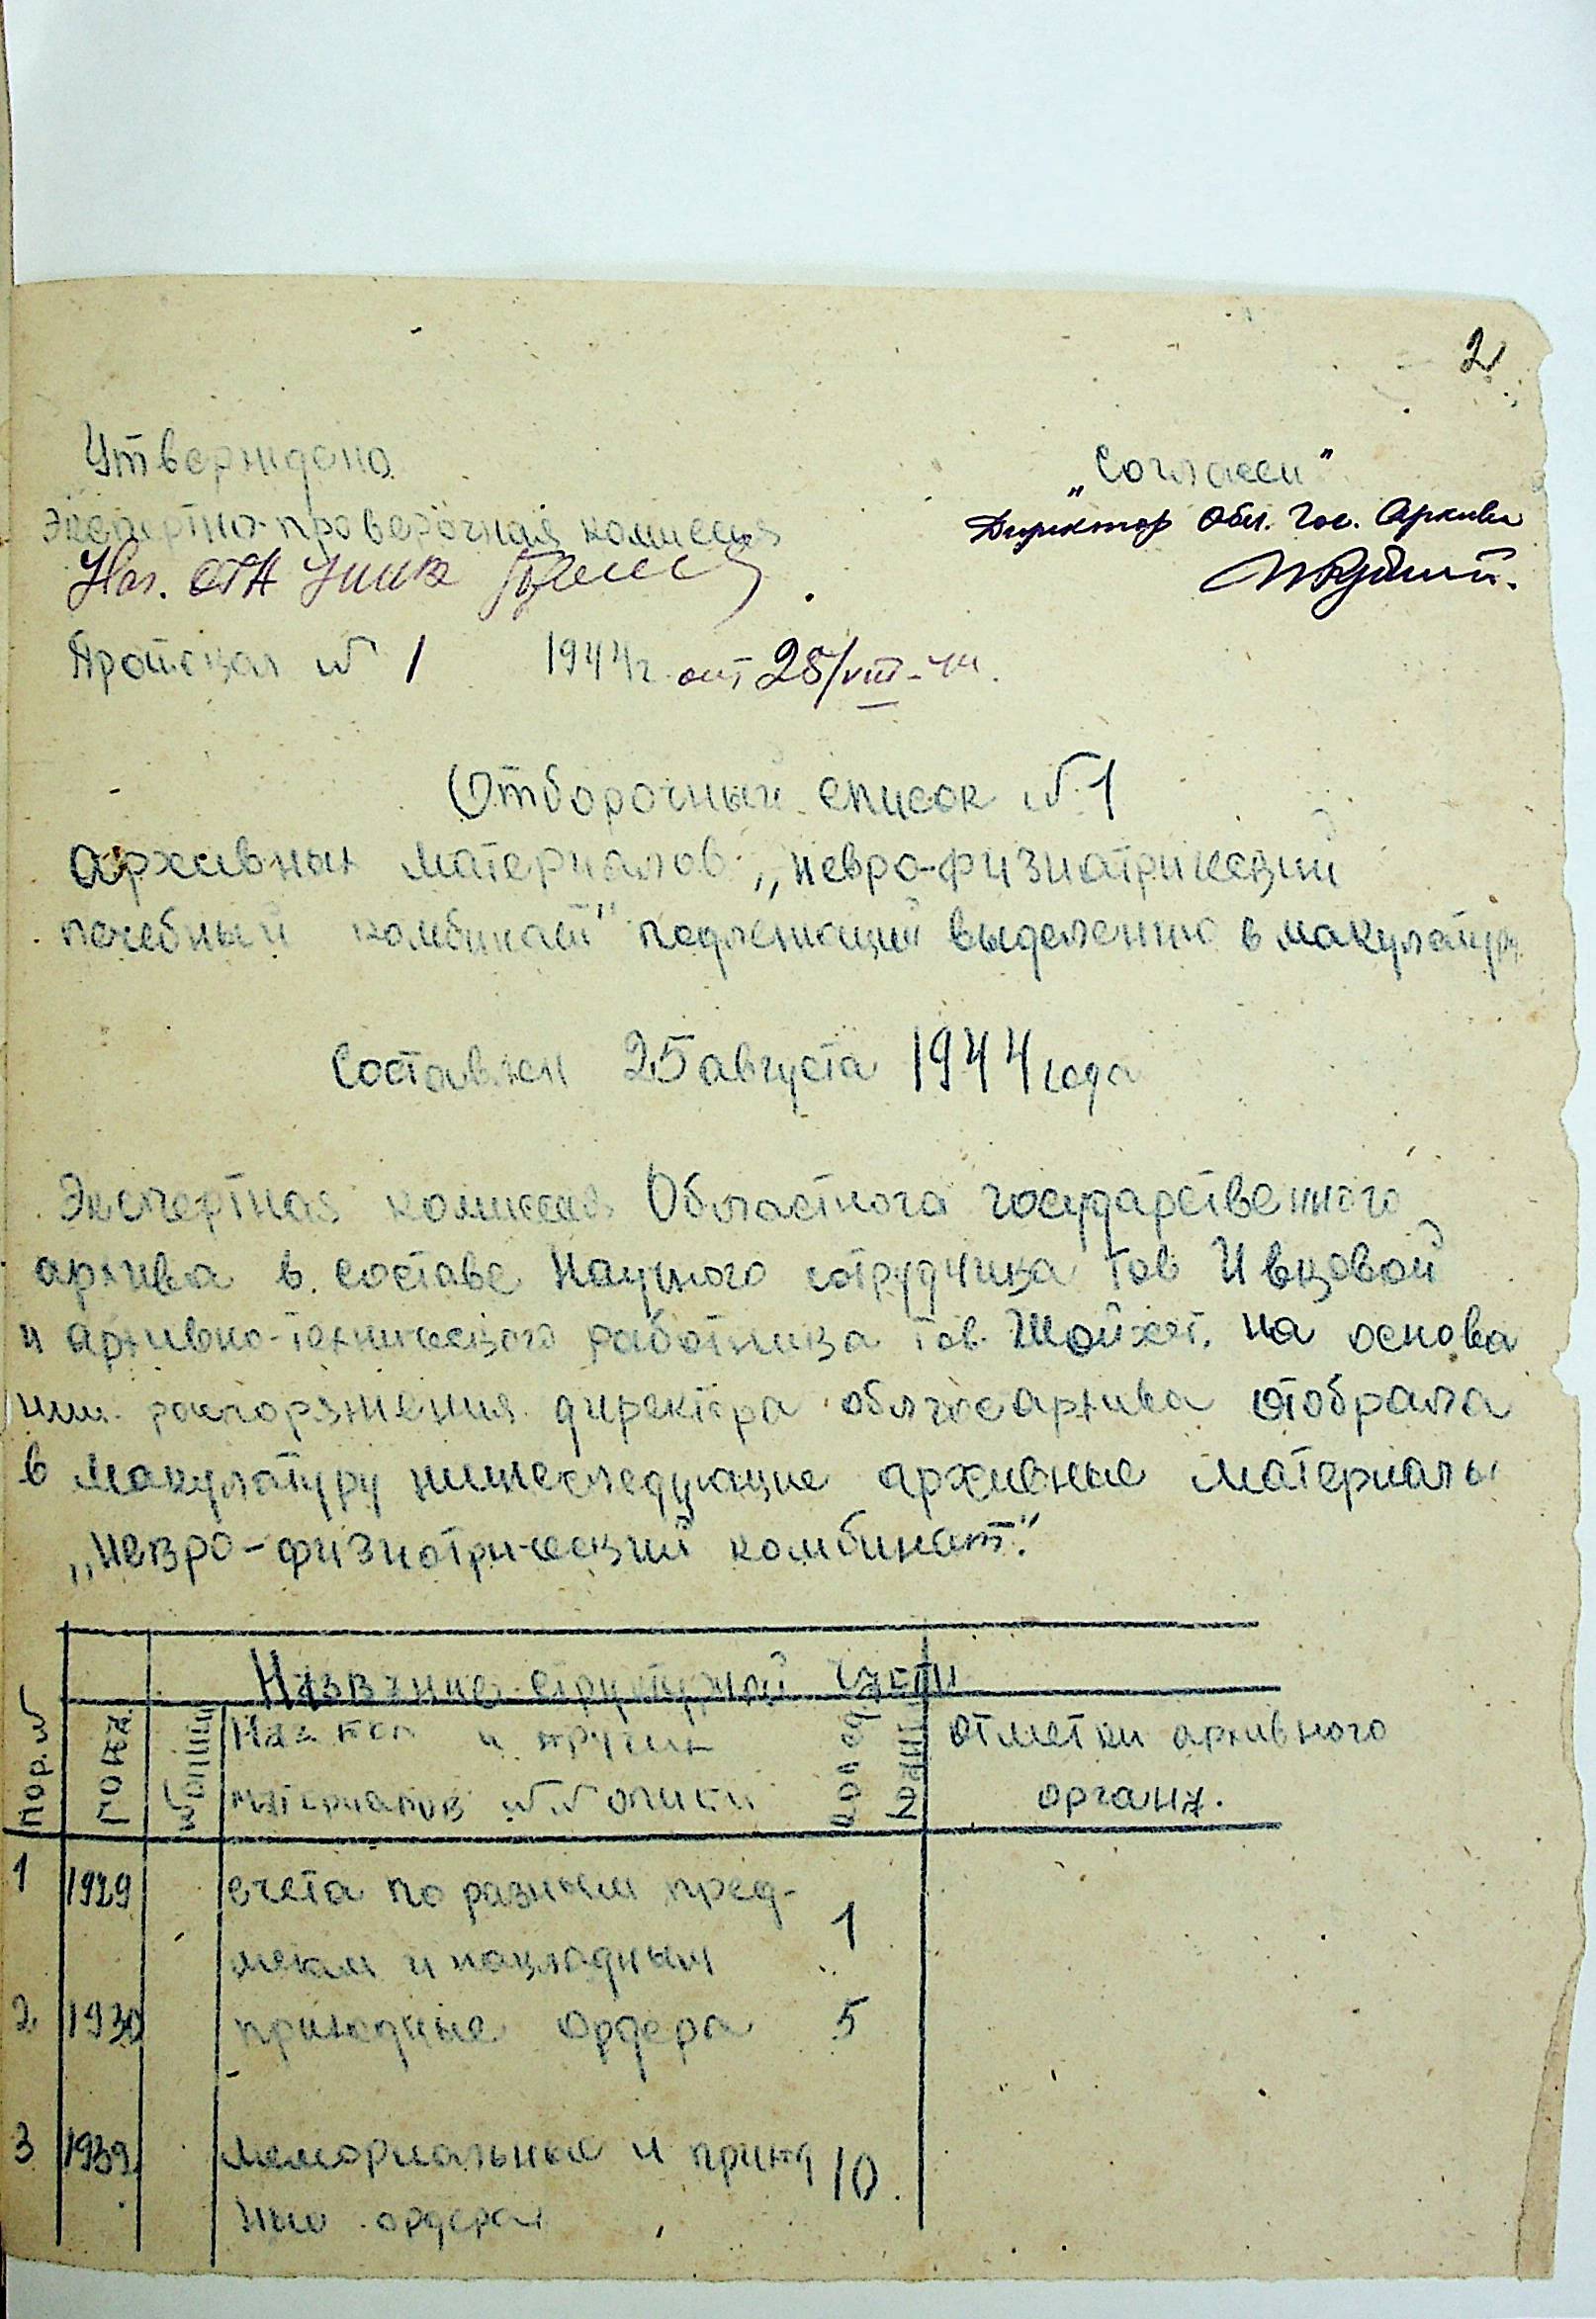 2
Утверждено
„Согласен"
Экспертно-проверочная комиссия
Директор Обл. Гос. Архива
Нач. ОГА УНКВ
Протокол № 1 1944 г. от 25/VIII-44.
Отборочный список № 1
Архивных материалов „Невро-физиатрический
лечебный комбинат" подлежащий выделению в макулатуру
Составлен 25 августа 1944 года
Экспертная комиссия Областного государственного
архива в составе Научного сотрудника тов Ивковой
и архивно-технического работника тов. Шойхет. на основа
нии распоряжения директора облгосархива отобрала
в макулатуру нижеследующие архивные материалы
„Невро-физиотрический комбинат".
Название структурной части
пор. № года № описи Наз. дел и групп кол. ед. отметки архивного
материалов №№ описи органа.
1 1929 счета по разным пред-
мекам и накладным 1
2 1930 приходные ордера 5
3 1939 мемориальные и приход 10.
ные ордера